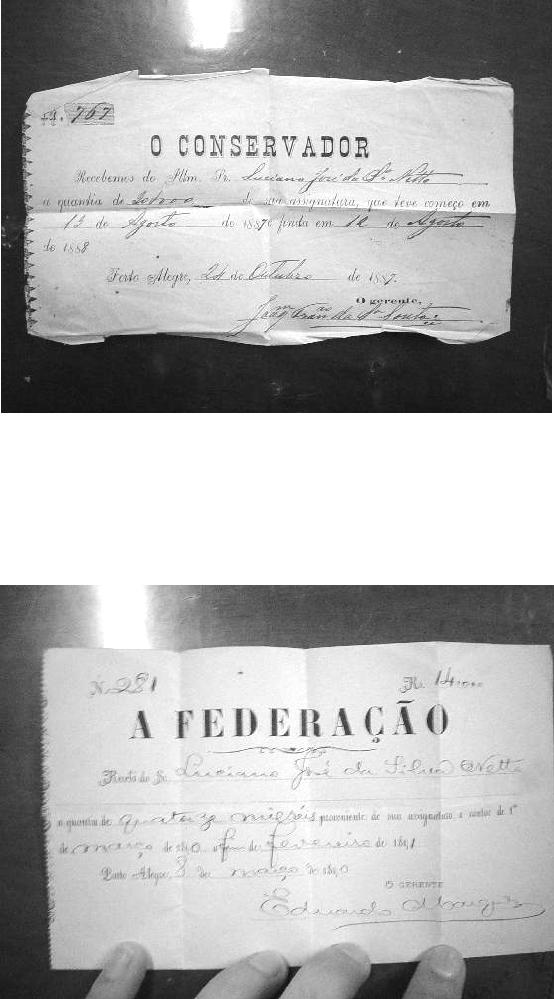 767
O CONSERVADOR
Recebemos do Illm. Sr. Luciano José da Sª Netto
a quantia de 20$000 de sua assignatura, que teve começo em
13 de Agosto de 1887 e finda em 12 de Agosto
de 1888
Porto Alegre, 24 de Outubro de 1887.
O gerente,
Joaqm Franco da Sª Souto
N. 281 Rs. 14$000
A FEDERAÇÃO
Recebi do Sr. Luciano José da Silva Netto
a quantia de quatorze milréis proveniente de sua assignatura a contar de 1º
de março de 1890 a fim de fevereiro de 1891
Porto Alegre, 3 de março de 1890
O GERENTE
Eduardo Marques